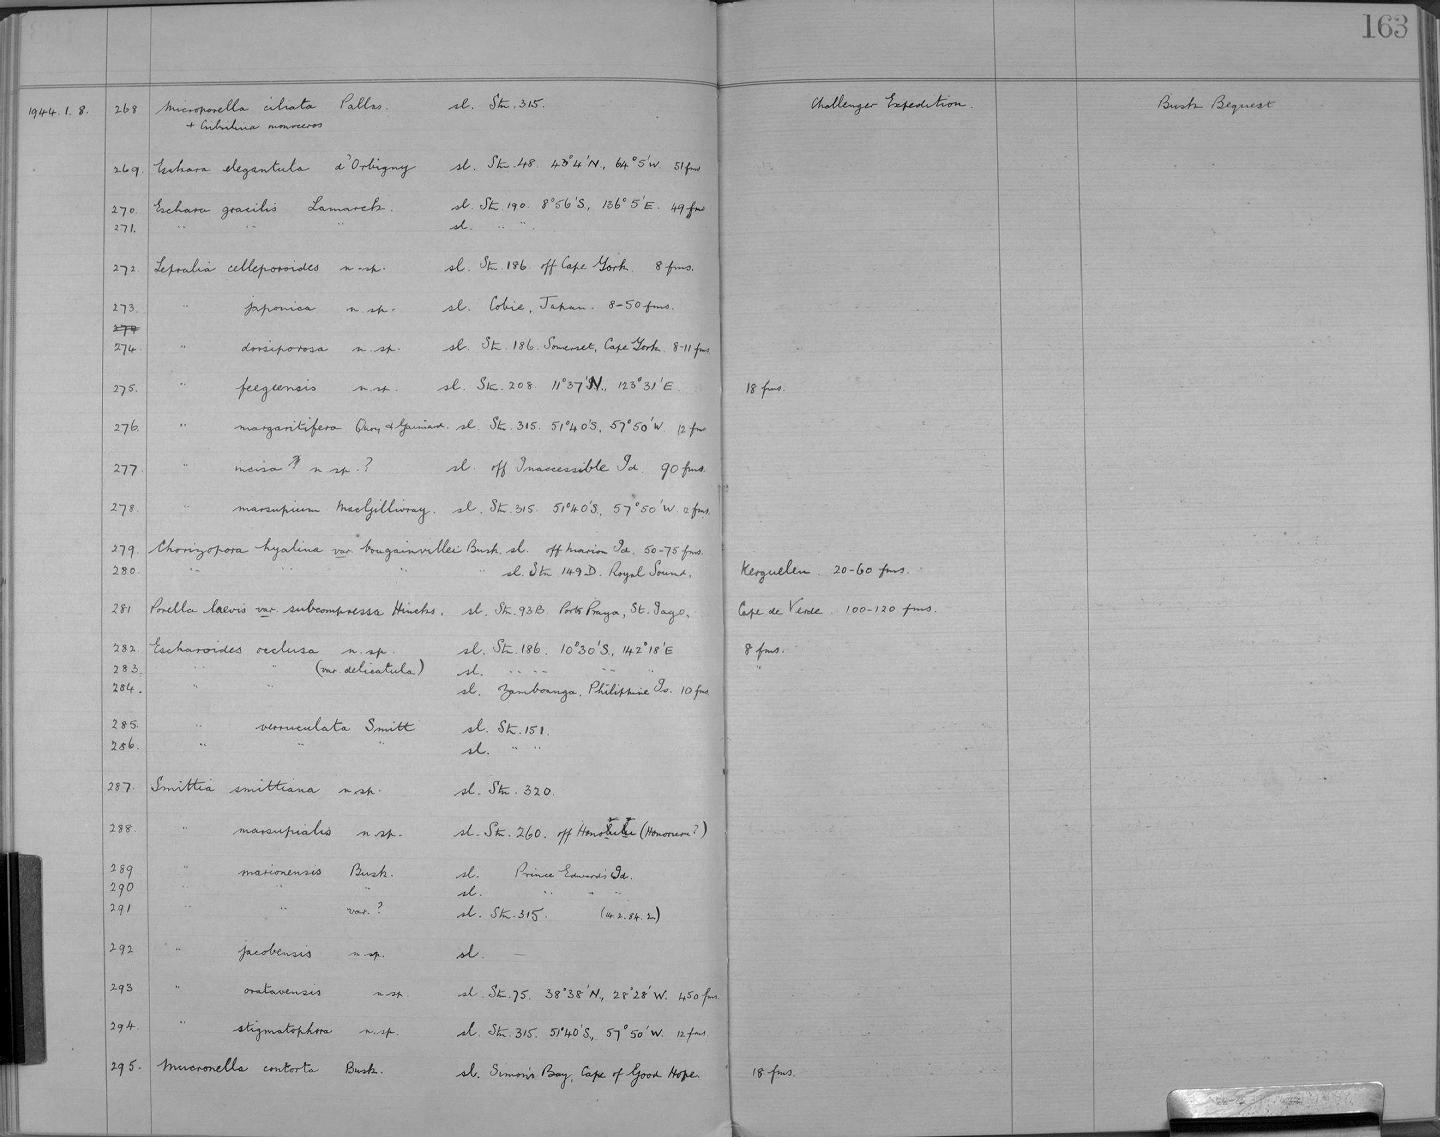 163
1944.1.8. 268 Microporella ciliata Pallas. sl. Stn. 315. Challenger Expedition. Busk Bequest
+ Cribrilina monoceros
269. Eschara elegantula d'Orbigny sl. Stn. 48. 43°4'N., 64°5'W. 51 fms
270. Eschara gracilis Lamarck. sl. Stn. 190. 8°56'S., 136°5'E. 49 fms
271. " " " sl. " "
272. Lepralia celleporoides n.sp. sl. Stn. 186 off Cape York. 8 fms.
273. " japonica n.sp. sl. Cobie, Japan. 8-50 fms.
274
274. " dorsiporosa n.sp. sl. Stn. 186. Somerset, Cape York. 8-11 fms.
275. " feegeensis n.sp. sl. Stn. 208. 11°37'N., 123°31'E. 18 fms.
276. " margaritifera Quoy & Gaimard. sl. Stn. 315. 51°40'S., 57°50'W. 12 fms
277 " incisa n.sp.? sl. off Inaccessible Id. 90 fms.
278. " marsupium MacGillivray. sl. Stn. 315. 51°40'S., 57°50'W. 12 fms.
279. Chorizopora hyalina var. bougainvillei Busk. sl. off Marion Id. 50-75 fms.
280. " " " " sl. Stn 149D. Royal Sound, Kerguelen. 20-60 fms.
281 Porella laevis var. subcompressa Hincks. sl. Stn. 93B. Porto Praya, St. Iago, Cape de Verde. 100-120 fms.
282. Escharoides occlusa n.sp. sl. Stn. 186. 10°30'S., 142°18'E 8 fms.
283. " " (var. delicatula) sl. " " " " "
284. " " sl. Zamboanga, Philippine Is. 10 fms.
285. " verruculata Smitt sl. Stn. 151.
286. " " " sl. " "
287. Smittia smittiana n.sp. sl. Stn. 320.
288. " marsupialis n.sp. sl. Stn. 260. off Honolulu (Honoruru?)
289 " marionensis Busk. sl. Prince Edward's Id.
290 " " " sl. " " "
291 " " var.? sl. Stn. 315. (14.2.84.2)
292 " jacobensis n.sp. sl. —
293 " oratavensis n.sp. sl. Stn. 75. 38°38'N., 28°28'W. 450 fms.
294. " stigmatophora n.sp. sl. Stn. 315. 51°40'S., 57°50'W. 12 fms.
295. Mucronella contorta Busk. sl. Simon's Bay, Cape of Good Hope. 18 fms.